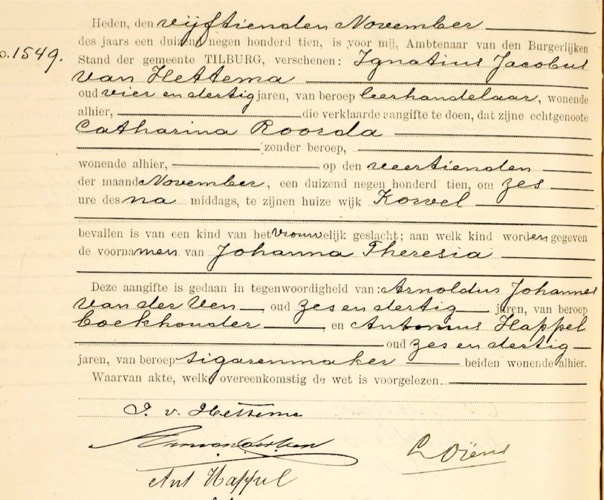 Heden, den vijftienden November
des jaars een duizend negen honderd tien, is voor mij, Ambtenaar van den Burgerlijken
o. 1549. Stand der gemeente TILBURG, verschenen: Ignatius Jacobus
van Hettema
oud vier en dertig jaren, van beroep leerhandelaar, wonende
alhier, die verklaarde aangifte te doen, dat zijne echtgenoote
Catharina Roorda
zonder beroep,
wonende alhier, op den veertienden
der maand November, een duizend negen honderd tien, om zes
ure des na middags, te zijnen huize wijk Korvel
bevallen is van een kind van het vrouwelijk geslacht; aan welk kind worden gegeven
de voornamen van Johanna Theresia
Deze aangifte is gedaan in tegenwoordigheid van: Arnoldus Johannes
van der Ven oud zes en dertig jaren, van beroep
boekhouder en Antonius Happel
oud zes en dertig
jaren, van beroep sigarenmaker beiden wonende alhier.
Waarvan akte, welke overeenkomstig de wet is voorgelezen.
I. v. Hettema
Ant Happel